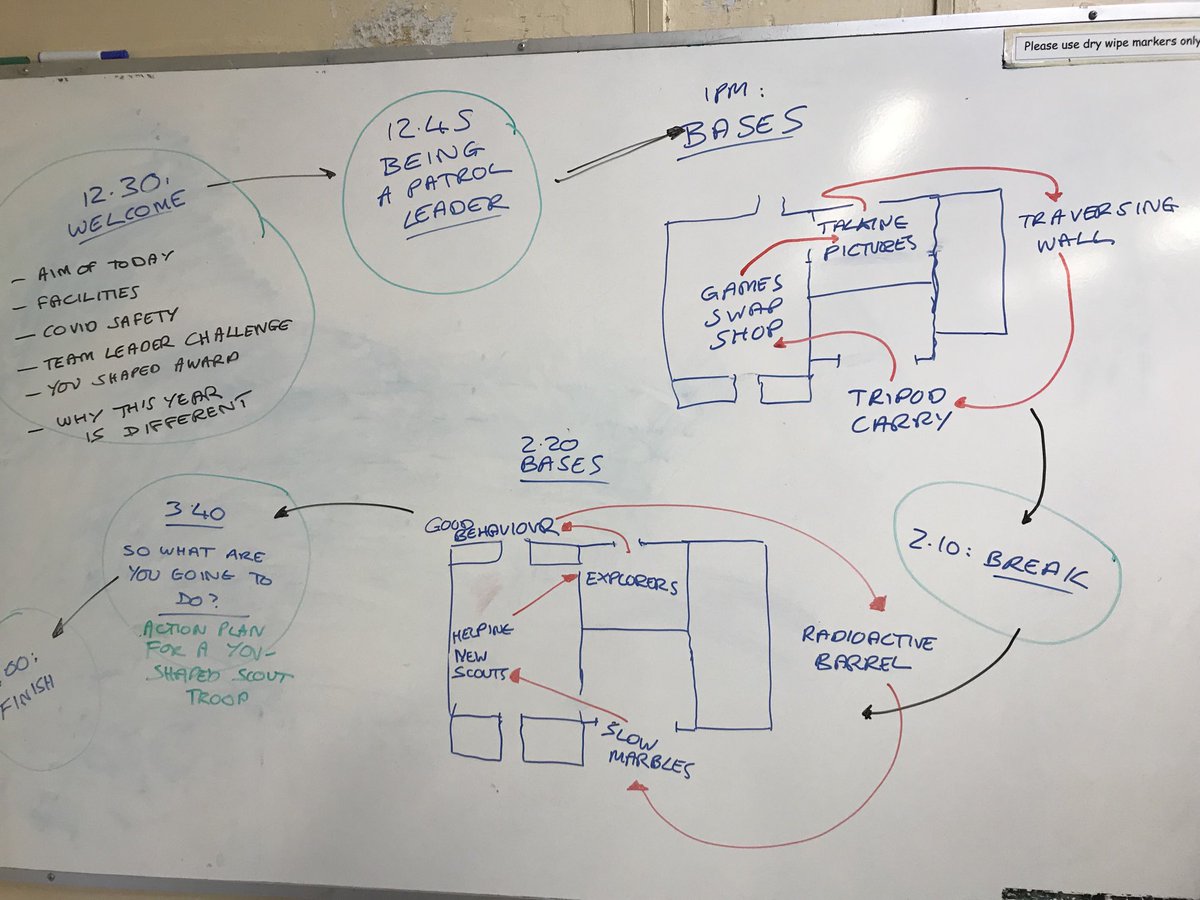 Please use dry wipe markers only
12.30:
WELCOME
- AIM OF TODAY
- FACILITIES
- COVID SAFETY
- TEAM LEADER CHALLENGE
- YOU SHAPED AWARD
- WHY THIS YEAR
IS DIFFERENT
12.45
BEING
A PATROL
LEADER
1PM:
BASES
TALKING
PICTURES
TRAVERSING
WALL
GAMES
SWAP
SHOP
TRIPOD
CARRY
2.10: BREAK
2.20
BASES
GOOD
BEHAVIOUR
EXPLORERS
HELPING
NEW
SCOUTS
RADIOACTIVE
BARREL
SLOW
MARBLES
3.40
SO WHAT ARE
YOU GOING TO
DO?
ACTION PLAN
FOR A YOU-
SHAPED SCOUT
TROOP
.00:
FINISH